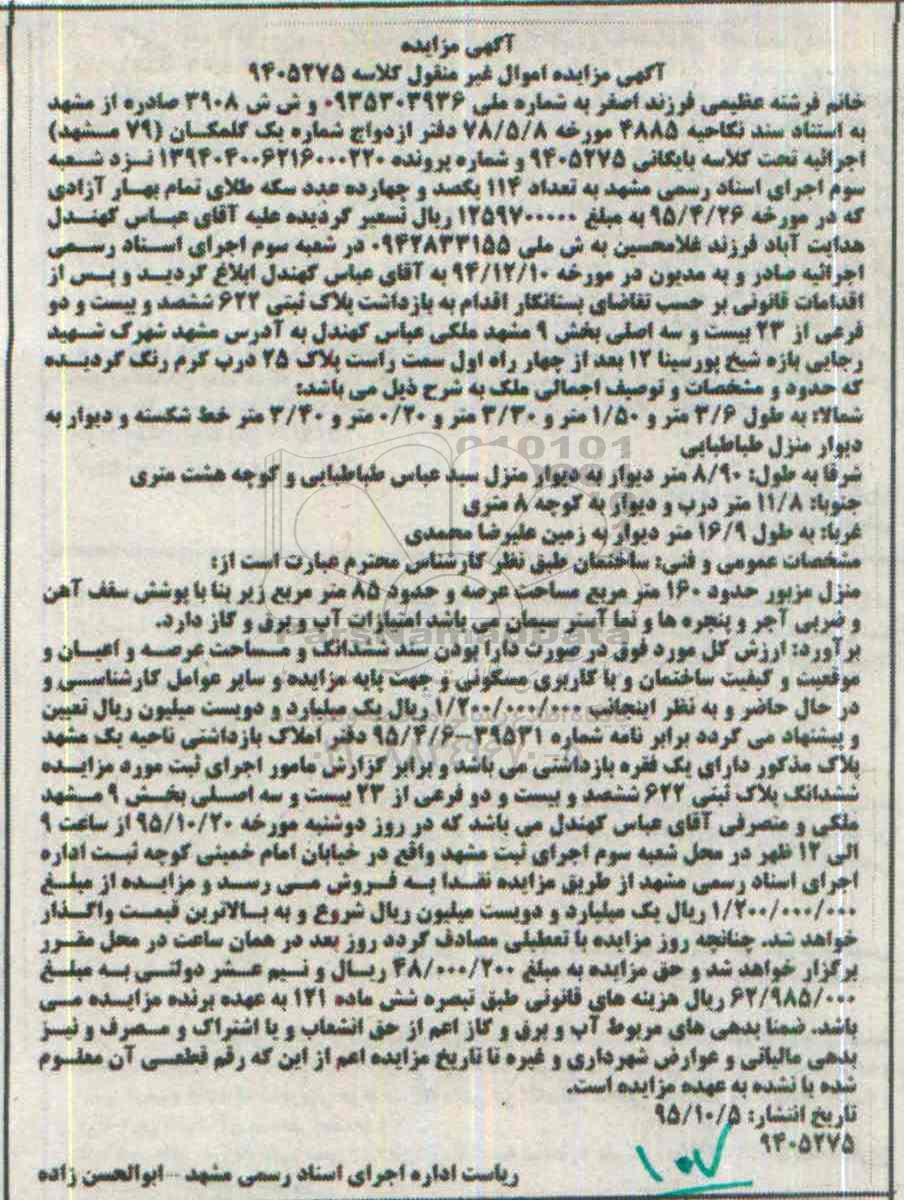 آگهی مزایده
آگهی مزایده اموال غیر منقول کلاسه ۹۴۰۵۲۷۵
خانم فرشته عظیمی فرزند اصغر به شماره ملی ۰۹۳۵۳۰۳۹۳۶ و ش ش ۳۹۰۸ صادره از مشهد
به استناد سند نکاحیه ۴۸۸۵ مورخه ۷۸/۵/۸ دفتر ازدواج شماره یک گلمکان (۷۹ مشهد)
اجرائیه تحت کلاسه بایگانی ۹۴۰۵۲۷۵ و شماره پرونده ۱۳۹۴۰۴۰۰۶۲۱۶۰۰۰۲۲۰ نزد شعبه
سوم اجرای اسناد رسمی مشهد به تعداد ۱۱۴ یکصد و چهارده عدد سکه طلای تمام بهار آزادی
که در مورخه ۹۵/۴/۲۶ به مبلغ ۱۲۵۹۷۰۰۰۰۰ ریال تسعیر گردیده علیه آقای عباس کهندل
هدایت آباد فرزند غلامحسین به ش ملی ۰۹۴۲۸۳۳۱۵۵ در شعبه سوم اجرای اسناد رسمی
اجرائیه صادر و به مدیون در مورخه ۹۴/۱۲/۱۰ به آقای عباس کهندل ابلاغ گردید و پس از
اقدامات قانونی بر حسب تقاضای بستانکار اقدام به بازداشت پلاک ثبتی ۶۲۲ ششصد و بیست و دو
فرعی از ۲۳ بیست و سه اصلی بخش ۹ مشهد ملکی عباس کهندل به آدرس مشهد شهرک شهید
رجایی بازه شیخ پورسینا ۱۲ بعد از چهار راه اول سمت راست پلاک ۲۵ درب کرم رنگ گردیده
که حدود و مشخصات و توصیف اجمالی ملک به شرح ذیل می باشد:
شمالا: به طول ۳/۶ متر و ۱/۵۰ متر و ۳/۳۰ متر و ۰/۲۰ متر و ۳/۴۰ متر خط شکسته و دیوار به
دیوار منزل طباطبایی
شرقا به طول: ۸/۹۰ متر دیوار به دیوار منزل سید عباس طباطبایی و کوچه هشت متری
جنوبا: ۱۱/۸ متر درب و دیوار به کوچه ۸ متری
غربا: به طول ۱۶/۹ متر دیوار به زمین علیرضا محمدی
مشخصات عمومی و فنی: ساختمان طبق نظر کارشناس محترم عبارت است از:
منزل مزبور حدود ۱۶۰ متر مربع مساحت عرصه و حدود ۸۵ متر مربع زیر بنا با پوشش سقف آهن
و ضربی آجر و پنجره ها و نما آستر سیمان می باشد امتیازات آب و برق و گاز دارد.
برآورد: ارزش کل مورد فوق در صورت دارا بودن سند ششدانگ و مساحت عرصه و اعیان و
موقعیت و کیفیت ساختمان و با کاربری مسکونی و جهت پایه مزایده و سایر عوامل کارشناسی و
در حال حاضر و به نظر اینجانب ۱/۲۰۰/۰۰۰/۰۰۰ ریال یک میلیارد و دویست میلیون ریال تعیین
و پیشنهاد می گردد برابر نامه شماره ۳۹۵۳۱-۹۵/۴/۶ دفتر املاک بازداشتی ناحیه یک مشهد
پلاک مذکور دارای یک فقره بازداشتی می باشد و برابر گزارش مامور اجرای ثبت مورد مزایده
ششدانگ پلاک ثبتی ۶۲۲ ششصد و بیست و دو فرعی از ۲۳ بیست و سه اصلی بخش ۹ مشهد
ملکی و متصرفی آقای عباس کهندل می باشد که در روز دوشنبه مورخه ۹۵/۱۰/۲۰ از ساعت ۹
الی ۱۲ ظهر در محل شعبه سوم اجرای ثبت مشهد واقع در خیابان امام خمینی کوچه ثبت اداره
اجرای اسناد رسمی مشهد از طریق مزایده نقدا به فروش می رسد و مزایده از مبلغ
۱/۲۰۰/۰۰۰/۰۰۰ ریال یک میلیارد و دویست میلیون ریال شروع و به بالاترین قیمت واگذار
خواهد شد. چنانچه روز مزایده با تعطیلی مصادف گردد روز بعد در همان ساعت در محل مقرر
برگزار خواهد شد و حق مزایده به مبلغ ۴۸/۰۰۰/۲۰۰ ریال و نیم عشر دولتی به مبلغ
۶۲/۹۸۵/۰۰۰ ریال هزینه های قانونی طبق تبصره شش ماده ۱۲۱ به عهده برنده مزایده می
باشد. ضمنا بدهی های مربوط آب و برق و گاز اعم از حق انشعاب و یا اشتراک و مصرف و نیز
بدهی مالیاتی و عوارض شهرداری و غیره تا تاریخ مزایده اعم از این که رقم قطعی آن معلوم
شده یا نشده به عهده مزایده است.
تاریخ انتشار: ۹۵/۱۰/۵
۹۴۰۵۲۷۵
ریاست اداره اجرای اسناد رسمی مشهد - ابوالحسن زاده
۱۰۷